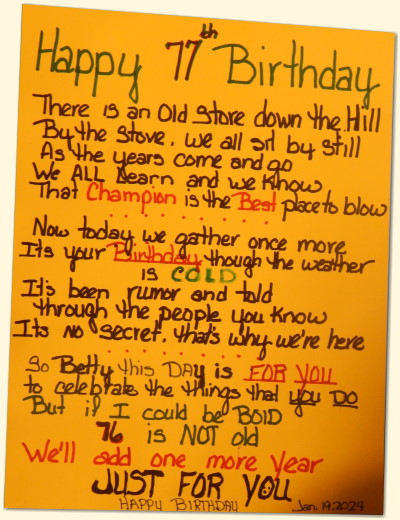 Happy 77th Birthday
There is an Old Store down the Hill
By the Stove, we all sit by still
As the years come and go
We ALL Learn and we Know
That Champion is the Best place to blow
Now today we gather once more
Its your Birthday though the weather
is COLD
It's been rumor and told
through the people you know
Its no secret, that's why we're here
So Betty this DAY is FOR YOU
to celebrate the things that you DO
But if I could be BOLD
76 is NOT old
We'll add one more year
JUST FOR YOU
HAPPY BIRTHDAY Jan. 19, 2024